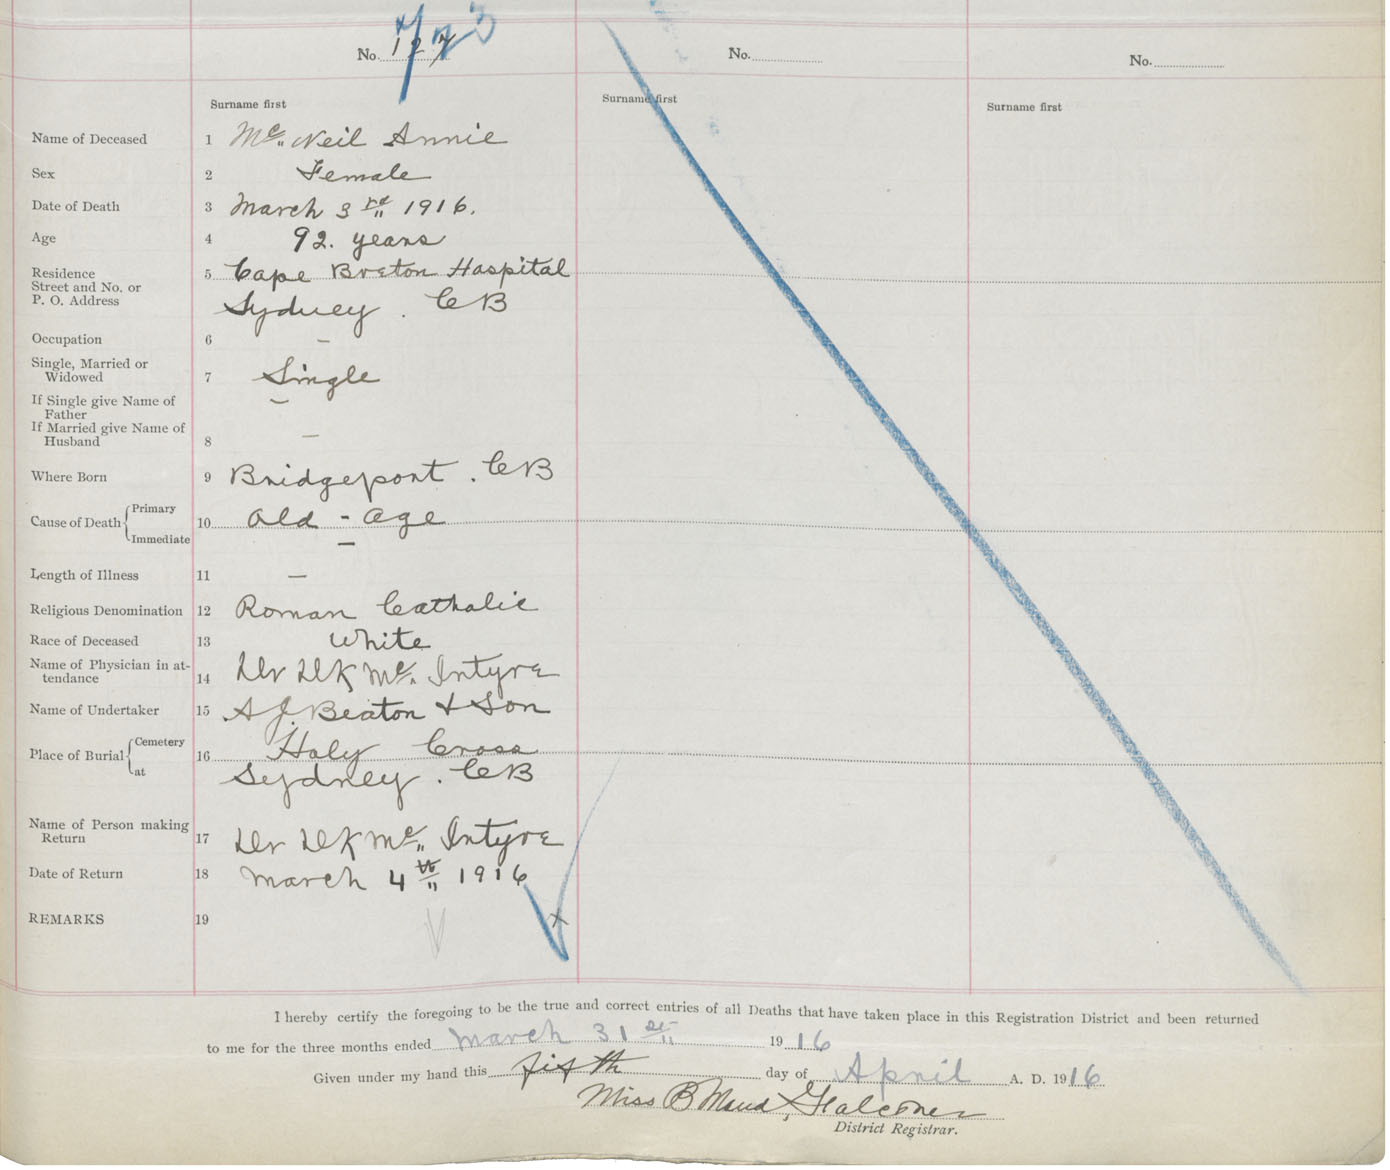 No. 127 773
No.
No.
Surname first
Surname first
Surname first
Name of Deceased 1 Mc Neil Annie
Sex 2 Female
Date of Death 3 March 3rd 1916.
Age 4 92. years
Residence
Street and No. or
P. O. Address
5 Cape Breton Hospital
Sydney. CB
Occupation 6 -
Single, Married or
Widowed 7 Single
If Single give Name of
Father -
If Married give Name of
Husband 8 -
Where Born 9 Bridgeport. CB
Cause of Death { Primary
Immediate
10 Old - age
-
Length of Illness 11 -
Religious Denomination 12 Roman Catholic
Race of Deceased 13 White
Name of Physician in at-
tendance 14 Dr DK Mc Intyre
Name of Undertaker 15 A J. Beaton & Son
Place of Burial { Cemetery
at
16 Holy Cross
Sydney. CB
Name of Person making
Return 17 Dr DK Mc Intyre
Date of Return 18 March 4th 1916
REMARKS 19
I hereby certify the foregoing to be the true and correct entries of all Deaths that have taken place in this Registration District and been returned
to me for the three months ended March 31st 1916
Given under my hand this fifth day of April A. D. 1916
Miss B Maud Falconer
District Registrar.